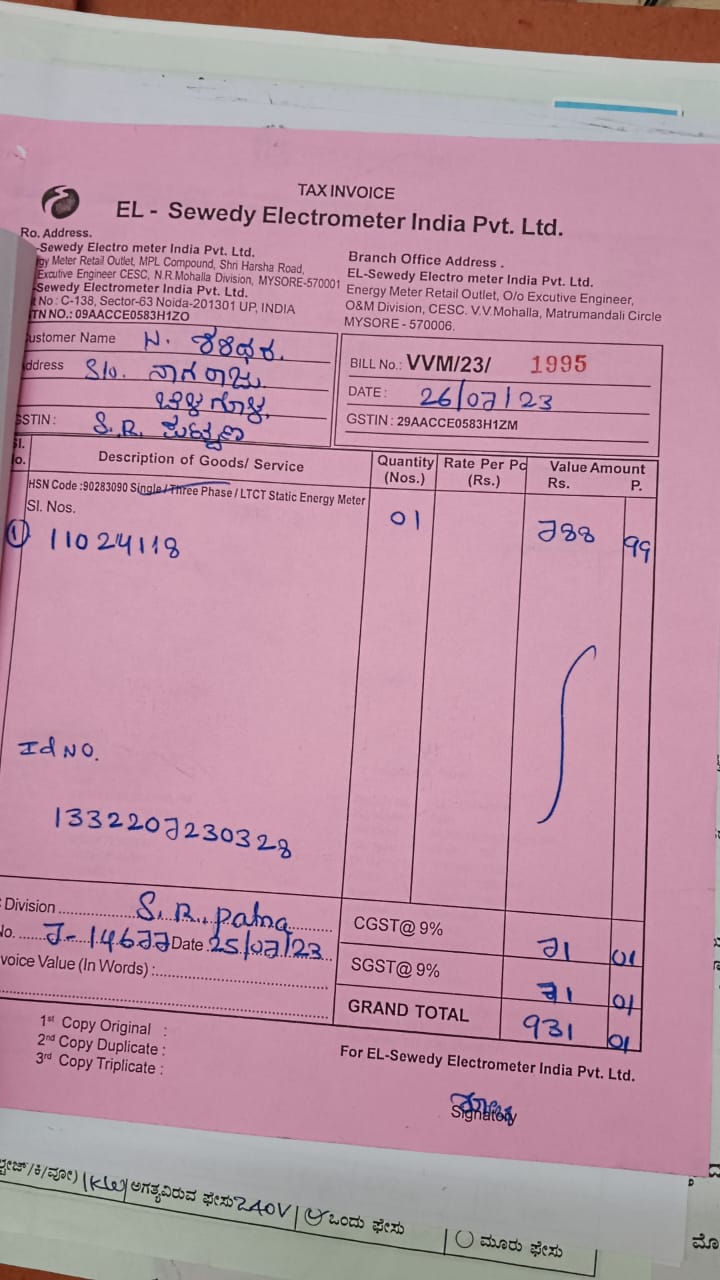 TAX INVOICE
EL - Sewedy Electrometer India Pvt. Ltd.
Ro. Address.
-Sewedy Electro meter India Pvt. Ltd.
gy Meter Retail Outlet, MPL Compound, Shri Harsha Road,
Excutive Engineer CESC, N.R.Mohalla Division, MYSORE-570001
-Sewedy Electrometer India Pvt. Ltd.
t No : C-138, Sector-63 Noida-201301 UP, INDIA
TN NO.: 09AACCE0583H1ZO
Branch Office Address .
EL-Sewedy Electro meter India Pvt. Ltd.
Energy Meter Retail Outlet, O/o Excutive Engineer,
O&M Division, CESC. V.V.Mohalla, Matrumandali Circle
MYSORE - 570006.
ustomer Name N. ಶಶಿಧರ.
ddress S/o. ನಾಗರಾಜು
GSTIN : S.R.
BILL No.: VVM/23/ 1995
DATE : 26/07/23
GSTIN : 29AACCE0583H1ZM
Sl. No. Description of Goods/ Service Quantity (Nos.) Rate Per Pc (Rs.) Value Amount Rs. P.
HSN Code :90283090 Single / Three Phase / LTCT Static Energy Meter
Sl. Nos.
① 11024118 01 788 99
Id NO.
1332207230328
Division S.R. patna
No. J-14677 Date 25/07/23
voice Value (In Words) :
CGST@ 9% 71 01
SGST@ 9% 71 01
GRAND TOTAL 931 01
1st Copy Original :
2nd Copy Duplicate :
3rd Copy Triplicate :
For EL-Sewedy Electrometer India Pvt. Ltd.
Signatory
(KW) ಅಗತ್ಯವಿರುವ ಫೇಸು 240V ಒಂದು ಫೇಸು ಮೂರು ಫೇಸು